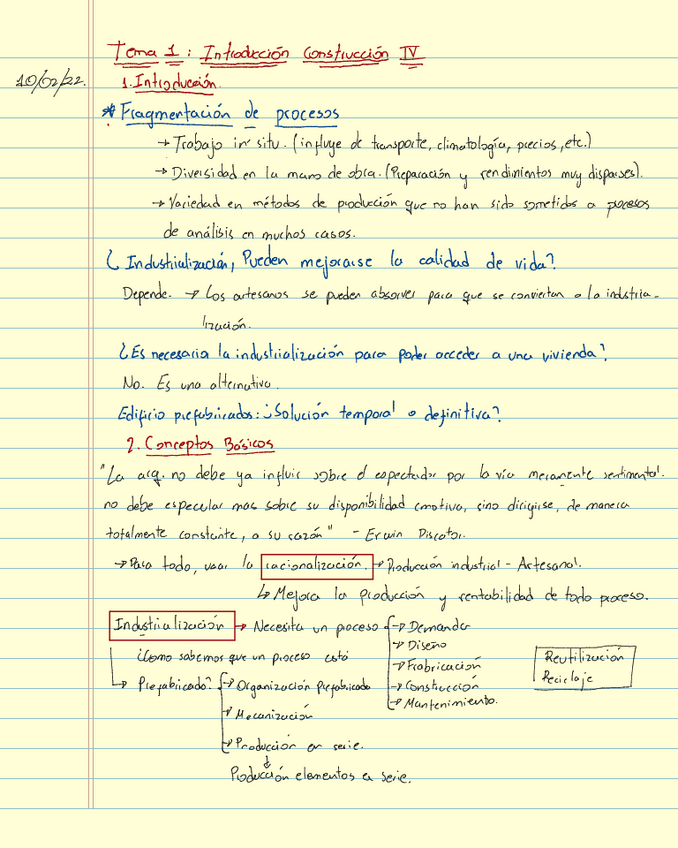 Tema 1: Introducción Construcción IV
10/02/22.
1. Introducción.
* Fragmentación de procesos
→ Trabajo in situ. (influye de transporte, climatología, precios, etc.)
→ Diversidad en la mano de obra. (Preparación y rendimientos muy dispares).
→ Variedad en métodos de producción que no han sido sometidos a procesos
de análisis en muchos casos.
¿Industrialización, Pueden mejorarse la calidad de vida?
Depende. → Los artesanos se pueden absorver para que se conviertan a la industria-
lización.
¿Es necesaria la industrialización para poder acceder a una vivienda?
No. Es una alternativa.
Edificio prefabricados: ¿Solución temporal o definitiva?
2. Conceptos Básicos
"La arq. no debe ya influir sobre el espectador por la vía meramente sentimental.
no debe especular mas sobre su disponibilidad emotiva, sino dirigirse, de manera
totalmente constante, a su razón" - Erwin Piscator.
→ Para todo, usar la racionalización. → Producción industrial - Artesanal.
↳ Mejora la producción y rentabilidad de todo proceso.
Industrialización → Necesita un proceso → Demanda
→ Diseño
→ Fabricación
→ Construcción
→ Mantenimiento.
Reutilización
Reciclaje
¿Como sabemos que un proceso está
Prefabricado? → Organización prefabricado
→ Mecanización
→ Producción en serie.
↓
Producción elementos en serie.